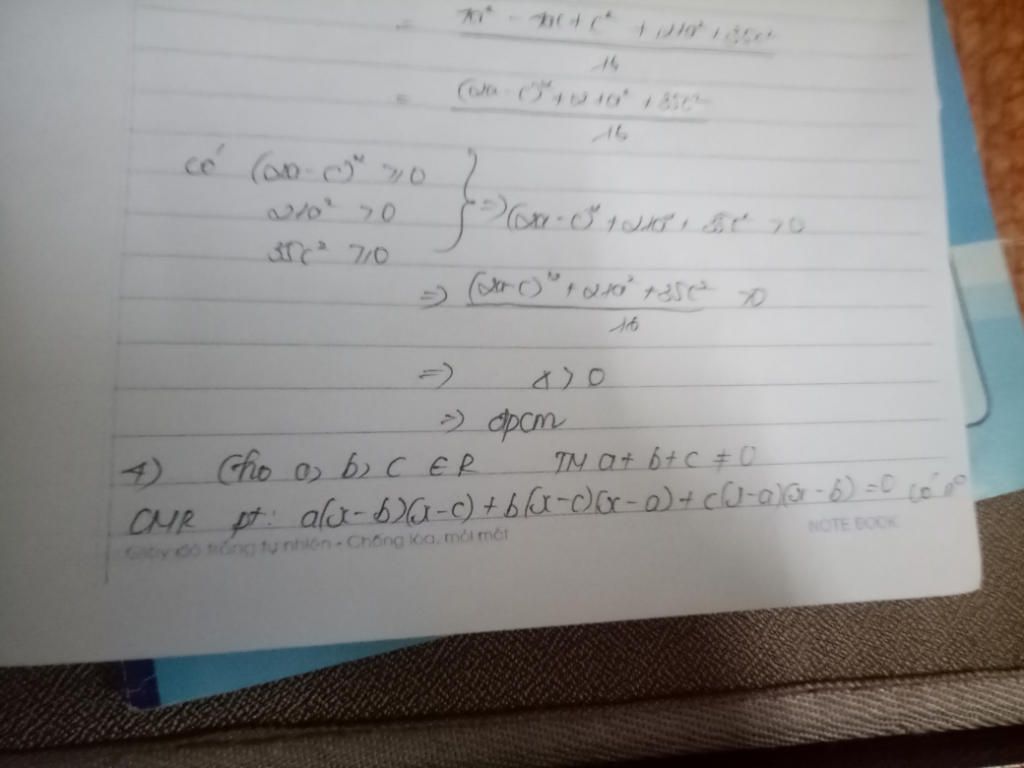 = + 21a² + 35c²
16
= (2a - c)² + 21a² + 35c²
16
có (2a - c)² ≥ 0
21a² > 0
35c² ≥ 0
} => (2a - c)² + 21a² + 35c² > 0
=> (2a - c)² + 21a² + 35c² > 0
16
=> x > 0
=> đpcm
4) Cho a, b, c ∈ R TM a + b + c ≠ 0
CMR pt: a(x-b)(x-c) + b(x-c)(x-a) + c(x-a)(x-b) = 0 có n⁰
Giấy đó trắng tự nhiên • Chống lóa, mỏi mắt
NOTE BOOK